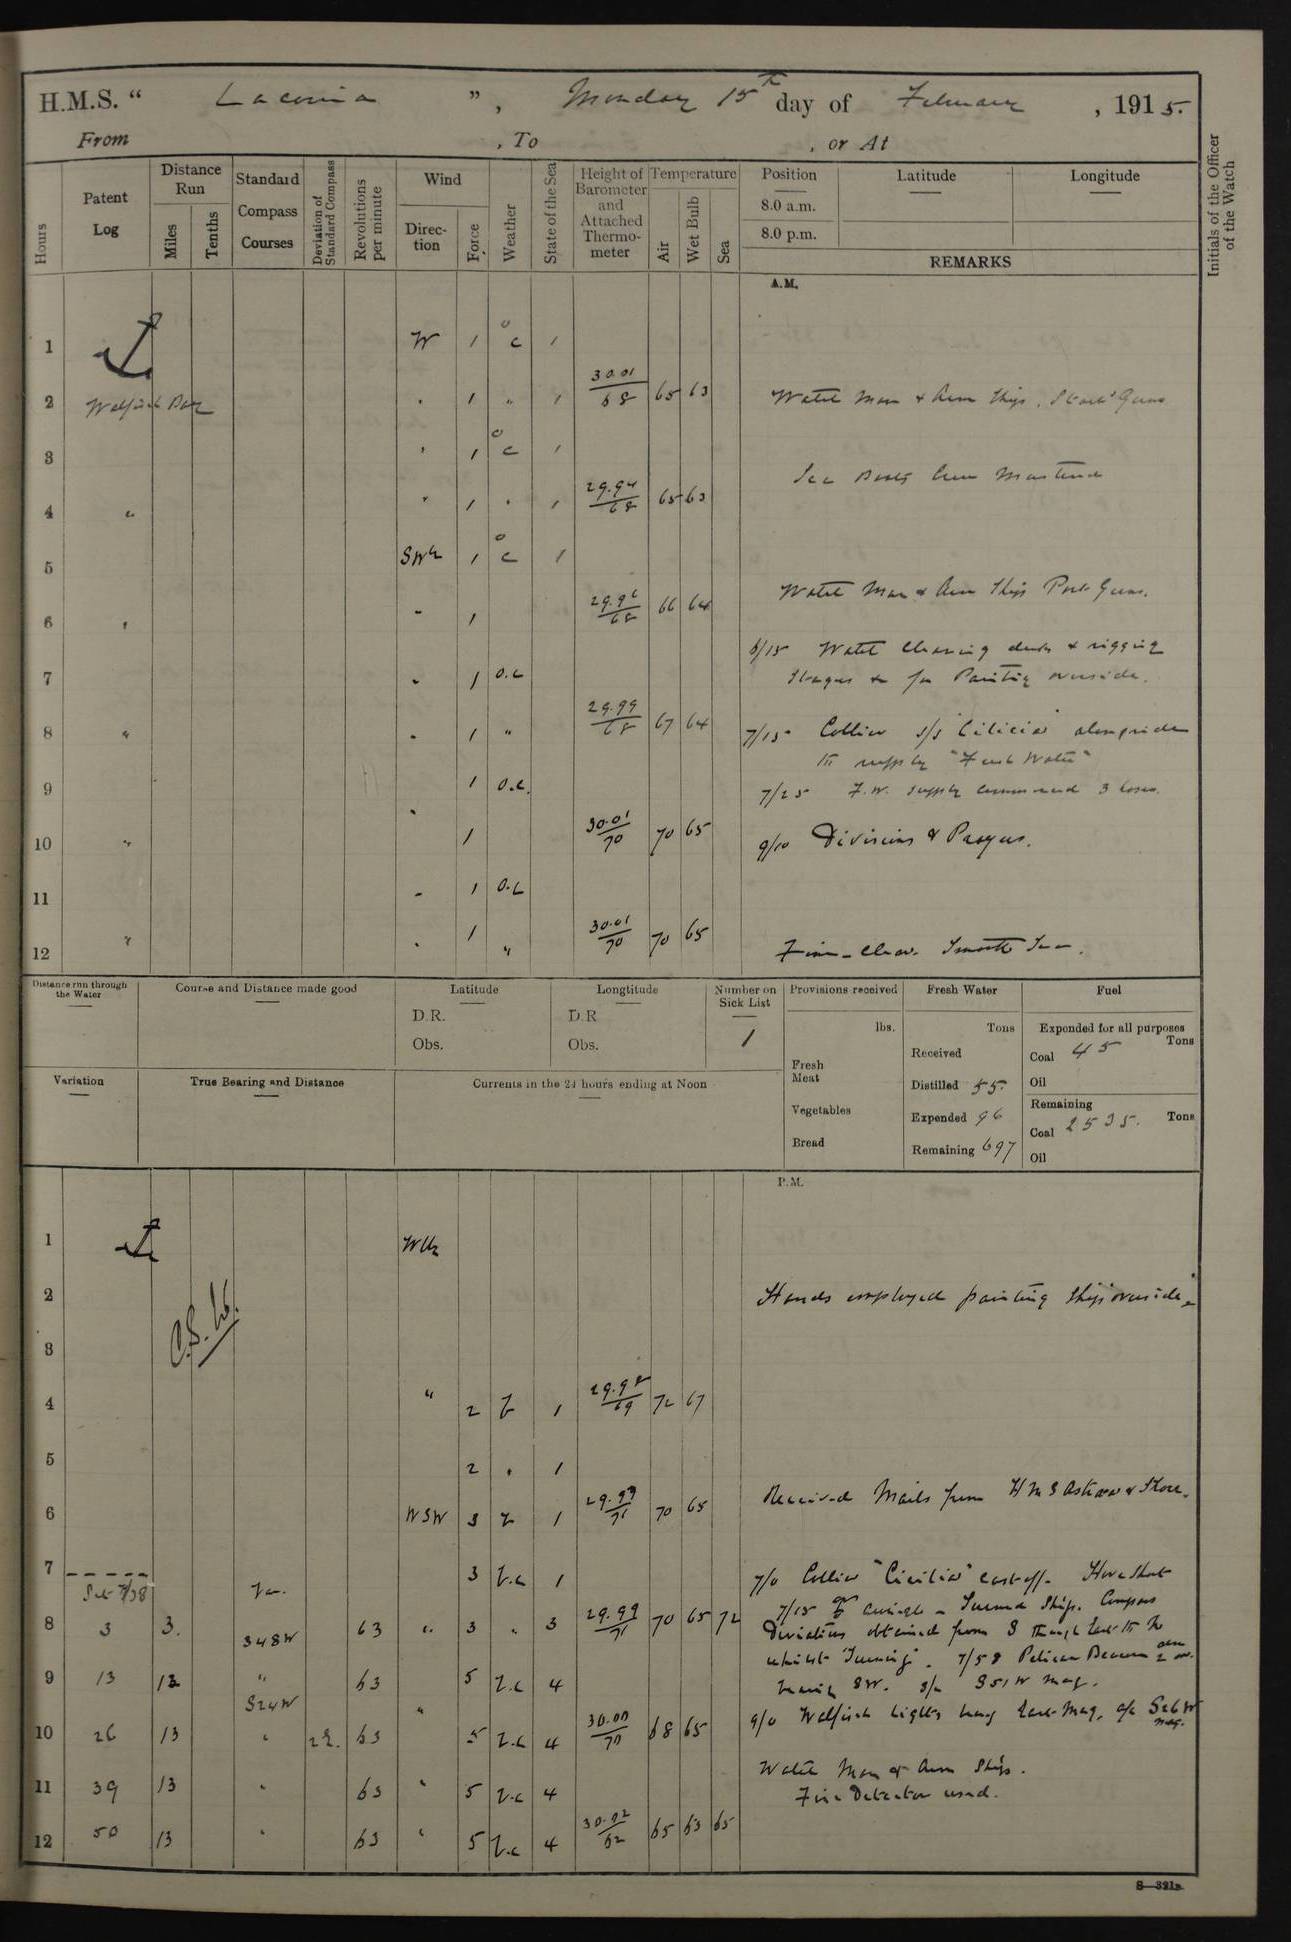 H.M.S. " Laconia ", Monday 15th day of February, 1915.
From , To , or At
Hours
Patent Log
Distance Run
Miles
Tenths
Standard Compass Courses
Deviation of Standard Compass
Revolutions per minute
Wind
Direction
Force
Weather
State of the Sea
Height of Barometer and Attached Thermometer
Temperature
Air
Wet Bulb
Sea
Position
8.0 a.m.
8.0 p.m.
Latitude
Longitude
REMARKS
Initials of the Officer of the Watch
A.M.
1 W 1 o c 1
2 Walfisch Bay " 1 " 1 30.01/68 65 63 Watch Man & Arm Ship. Starb Guns
3 " 1 o c 1
Sea Boats Crew Mustered
4 " " 1 " 1 29.94/68 65 63
5 SW 1 o c 1
Watch Man & Arm Ship Port Guns.
6 " " 1 29.96/68 66 64
6/15 Watch Cleaning decks & rigging
7 " 1 o.c Stages & for Painting overside.
8 " " 1 " 29.99/68 67 64 7/15 Collier s/s "Cilicia" alongside
to supply "Fresh Water"
9 " 1 o.c. 7/25 F.W. supply commenced 3 hoses.
10 " 1 30.01/70 70 65 9/10 Divisions & Prayers.
11 " 1 o.c
12 " " 1 " 30.01/70 70 65 Fine - Clear. Smooth Sea.
Distance run through the Water
Course and Distance made good
Latitude
D.R.
Obs.
Longtitude
D.R
Obs.
Number on Sick List
1
Provisions received
lbs.
Fresh Meat
Vegetables
Bread
Fresh Water
Tons
Received
Distilled 55.
Expended 96
Remaining 697
Fuel
Expended for all purposes
Coal 45 Tons
Oil
Remaining
Coal 2535. Tons
Oil
Variation
True Bearing and Distance
Currents in the 24 hours ending at Noon
P.M.
1
2 Hands employed painting ship overside.
3
4 " 2 b 1 29.98/69 72 67
5 2 " 1
6 WSW 3 b 1 29.99/71 70 65 Received Mails from HMS Astraea & Shore.
7 3 b.c 1 7/0 Collier "Cicilia" cast off. Hove Short
Set 7/38
8 3 3. S48W 63 " 3 " 3 29.99/71 70 65 72 Deviations obtained from S through East to N
whilst Turning. 7/58 Pelican Beacon
9 13 12 " 63 5 b.c 4 bearing SW. S51W mag.
S24W
10 26 13 " 63 " 5 b.c 4 30.00/70 68 65 9/0 Walfisch Lights bearg East Mag, a/c S26W mag.
Watch Man & Arm Ship.
11 39 13 " 63 " 5 b.c 4 Fire Detector used.
12 50 13 " 63 " 5 b.c 4 30.02/62 65 63 65
S—321a